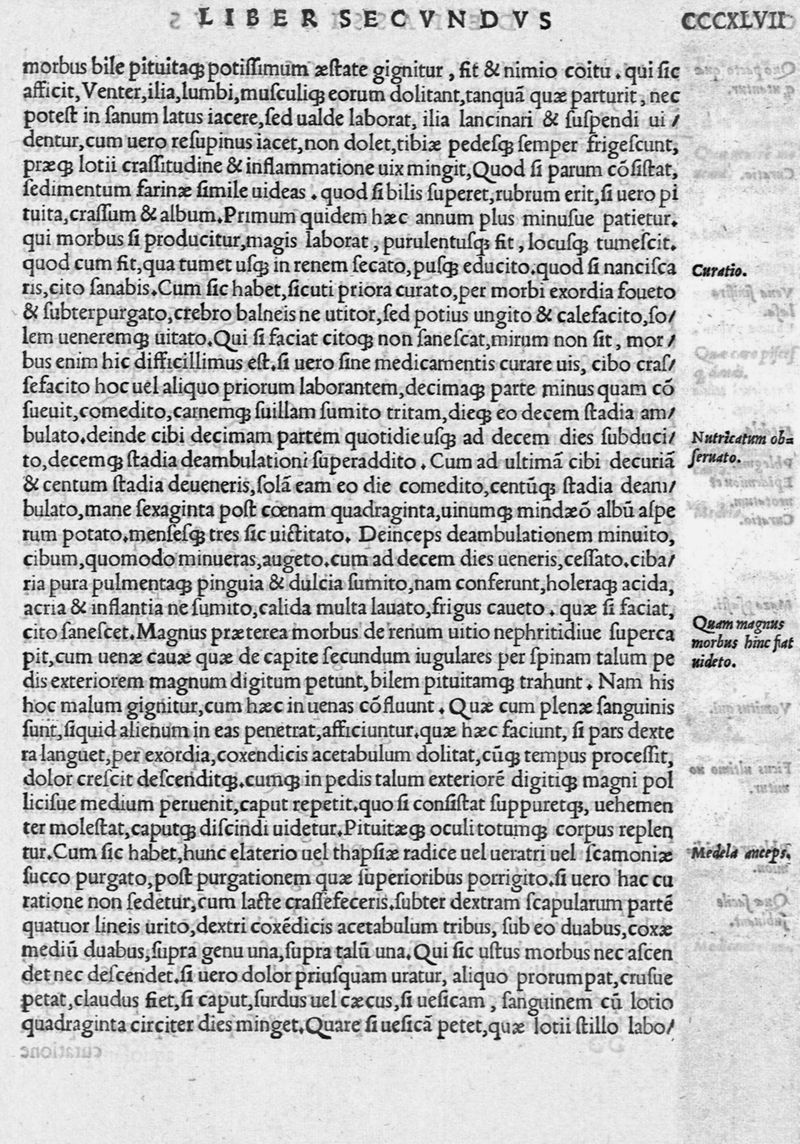 LIBER SECVNDVS
CCCXLVII
morbus bile pituitaqꝫ potiſſimum æſtate gignitur, fit & nimio coitu. qui ſic
afficit, Venter, ilia, lumbi, muſculiqꝫ eorum dolitant, tanquã quæ parturit, nec
poteſt in ſanum latus iacere, ſed ualde laborat, ilia lancinari & ſuſpendi ui/
dentur, cum uero reſupinus iacet, non dolet, tibiæ pedeſqꝫ ſemper frigeſcunt,
præqꝫ lotii craſſitudine & inflammatione uix mingit, Quod ſi parum cõſiſtat,
ſedimentum farinæ ſimile uideas. quod ſi bilis ſuperet, rubrum erit, ſi uero pi
tuita, craſſum & album. Primum quidem hæc annum plus minuſue patietur.
qui morbus ſi producitur, magis laborat, purulentuſqꝫ fit, locuſqꝫ tumeſcit.
quod cum fit, qua tumet uſqꝫ in renem ſecato, puſqꝫ educito. quod ſi nanciſca
ris, cito ſanabis. Cum ſic habet, ſicuti priora curato, per morbi exordia foueto
& ſubterpurgato, crebro balneis ne utitor, ſed potius ungito & calefacito, ſo/
lem ueneremqꝫ uitato. Qui ſi faciat citoqꝫ non ſaneſcat, mirum non ſit, mor/
bus enim hic difficillimus eſt. ſi uero ſine medicamentis curare uis, cibo craſ/
ſefacito hoc uel aliquo priorum laborantem, decimaqꝫ parte minus quam cõ
ſueuit, comedito, carnemqꝫ ſuillam ſumito tritam, dieqꝫ eo decem ſtadia am/
bulato. deinde cibi decimam partem quotidie uſqꝫ ad decem dies ſubduci/
to, decemqꝫ ſtadia deambulationi ſuperaddito. Cum ad ultimã cibi decuriã
& centum ſtadia deueneris, ſolã eam eo die comedito, centũqꝫ ſtadia deam/
bulato, mane ſexaginta poſt cœnam quadraginta, uinumqꝫ mindæõ albũ aſpe
rum potato. menſeſqꝫ tres ſic uictitato. Deinceps deambulationem minuito,
cibum, quomodo minueras, augeto. cum ad decem dies ueneris, ceſſato. ciba/
ria pura pulmentaqꝫ pinguia & dulcia ſumito, nam conferunt, holeraqꝫ acida,
acria & inflantia ne ſumito, calida multa lauato, frigus caueto. quæ ſi faciat,
cito ſaneſcet. Magnus præterea morbus de renum uitio nephritidiue ſuperca
pit, cum uenæ cauæ quæ de capite ſecundum iugulares per ſpinam talum pe
dis exteriorem magnum digitum petunt, bilem pituitamqꝫ trahunt. Nam his
hoc malum gignitur, cum hæc in uenas cõfluunt. Quæ cum plenæ ſanguinis
ſunt, ſiquid alienum in eas penetrat, afficiuntur. quæ hæc faciunt, ſi pars dexte
ra languet, per exordia, coxendicis acetabulum dolitat, cũqꝫ tempus proceſſit,
dolor creſcit deſcenditqꝫ. cumqꝫ in pedis talum exteriorẽ digitiqꝫ magni pol
liciſue medium peruenit, caput repetit. quo ſi conſiſtat ſuppuretqꝫ, uehemen
ter moleſtat, caputqꝫ diſcindi uidetur. Pituitæqꝫ oculi totumqꝫ corpus replen
tur. Cum ſic habet, hunc elaterio uel thapſiæ radice uel ueratri uel ſcamoniæ
ſucco purgato, poſt purgationem quæ ſuperioribus porrigito. ſi uero hac cu
ratione non ſedetur, cum lacte craſſefeceris. ſubter dextram ſcapularum partẽ
quatuor lineis urito, dextri coxẽdicis acetabulum tribus, ſub eo duabus, coxæ
mediũ duabus, ſupra genu una, ſupra talũ una. Qui ſic uſtus morbus nec aſcen
det nec deſcendet. ſi uero dolor priuſquam uratur, aliquo prorumpat, cruſue
petat, claudus fiet, ſi caput, ſurdus uel cæcus, ſi ueſicam, ſanguinem cũ lotio
quadraginta circiter dies minget. Quare ſi ueſicã petet, quæ lotii ſtillo labo/
Curatio.
Nutricatum ob=
ſeruato.
Quam magnus
morbus hinc fiat
uideto.
Medela anceps.